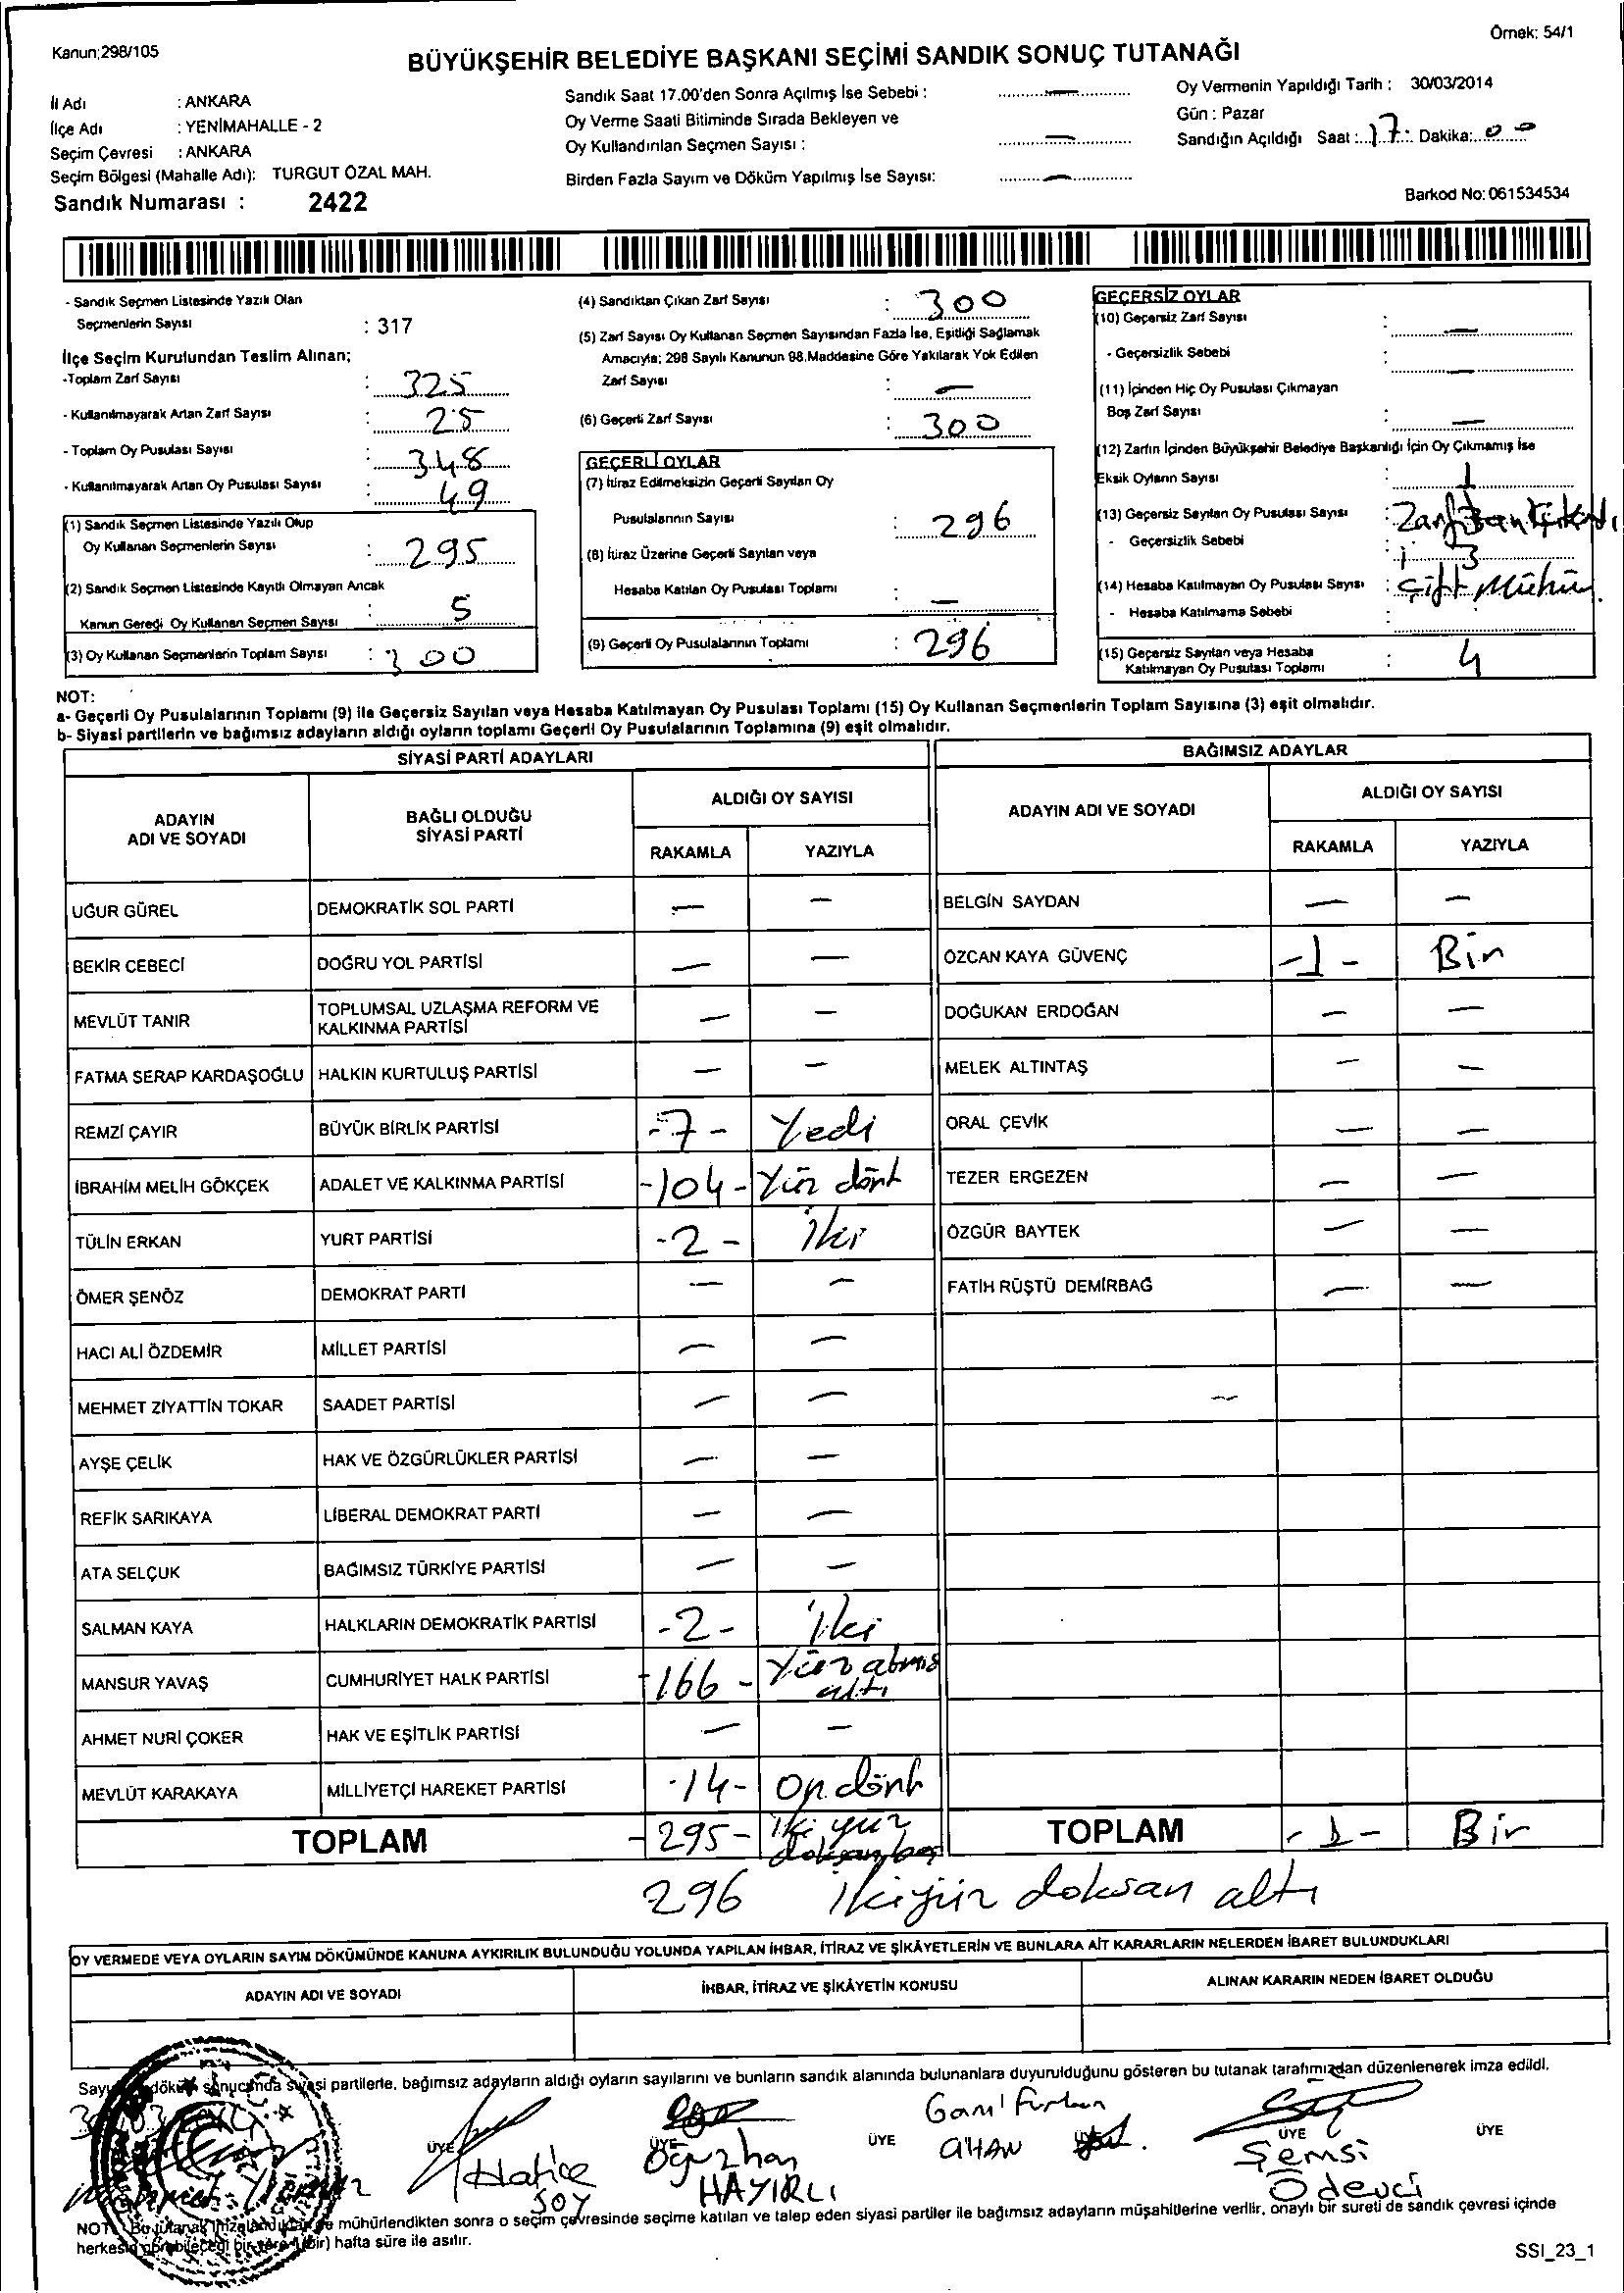 Kanun;298/105
Örnek: 54/1
BÜYÜKŞEHİR BELEDİYE BAŞKANI SEÇİMİ SANDIK SONUÇ TUTANAĞI
İl Adı : ANKARA
İlçe Adı : YENİMAHALLE - 2
Seçim Çevresi : ANKARA
Seçim Bölgesi (Mahalle Adı): TURGUT ÖZAL MAH.
Sandık Numarası : 2422
Sandık Saat 17.00'den Sonra Açılmış İse Sebebi : —
Oy Verme Saati Bitiminde Sırada Bekleyen ve
Oy Kullandırılan Seçmen Sayısı : —
Birden Fazla Sayım ve Döküm Yapılmış İse Sayısı: —
Oy Vermenin Yapıldığı Tarih : 30/03/2014
Gün : Pazar
Sandığın Açıldığı Saat : 17 : Dakika: 00
Barkod No: 061534534
- Sandık Seçmen Listesinde Yazılı Olan
Seçmenlerin Sayısı : 317
İlçe Seçim Kurulundan Teslim Alınan;
-Toplam Zarf Sayısı : 325
- Kullanılmayarak Artan Zarf Sayısı : 25
- Toplam Oy Pusulası Sayısı : 348
- Kullanılmayarak Artan Oy Pusulası Sayısı : 49
(1) Sandık Seçmen Listesinde Yazılı Olup
Oy Kullanan Seçmenlerin Sayısı : 295
(2) Sandık Seçmen Listesinde Kayıtlı Olmayan Ancak
Kanun Gereği Oy Kullanan Seçmen Sayısı : 5
(3) Oy Kullanan Seçmenlerin Toplam Sayısı : 300
(4) Sandıktan Çıkan Zarf Sayısı : 300
(5) Zarf Sayısı Oy Kullanan Seçmen Sayısından Fazla İse, Eşitliği Sağlamak
Amacıyla; 298 Sayılı Kanunun 98.Maddesine Göre Yakılarak Yok Edilen
Zarf Sayısı : —
(6) Geçerli Zarf Sayısı : 300
GEÇERLİ OYLAR
(7) İtiraz Edilmeksizin Geçerli Sayılan Oy
Pusulalarının Sayısı : 296
(8) İtiraz Üzerine Geçerli Sayılan veya
Hesaba Katılan Oy Pusulası Toplamı : —
(9) Geçerli Oy Pusulalarının Toplamı : 296
GEÇERSİZ OYLAR
(10) Geçersiz Zarf Sayısı : —
- Geçersizlik Sebebi : —
(11) İçinden Hiç Oy Pusulası Çıkmayan
Boş Zarf Sayısı : —
(12) Zarfın İçinden Büyükşehir Belediye Başkanlığı İçin Oy Çıkmamış İse
Eksik Oyların Sayısı : 1
(13) Geçersiz Sayılan Oy Pusulası Sayısı :
- Geçersizlik Sebebi : 3
(14) Hesaba Katılmayan Oy Pusulası Sayısı : Çift Mühür
- Hesaba Katılmama Sebebi :
(15) Geçersiz Sayılan veya Hesaba
Katılmayan Oy Pusulası Toplamı : 4
NOT:
a- Geçerli Oy Pusulalarının Toplamı (9) ile Geçersiz Sayılan veya Hesaba Katılmayan Oy Pusulası Toplamı (15) Oy Kullanan Seçmenlerin Toplam Sayısına (3) eşit olmalıdır.
b- Siyasi partilerin ve bağımsız adayların aldığı oyların toplamı Geçerli Oy Pusulalarının Toplamına (9) eşit olmalıdır.
SİYASİ PARTİ ADAYLARI
ADAYIN ADI VE SOYADI BAĞLI OLDUĞU SİYASİ PARTİ ALDIĞI OY SAYISI
RAKAMLA YAZIYLA
UĞUR GÜREL DEMOKRATİK SOL PARTİ — —
BEKİR CEBECİ DOĞRU YOL PARTİSİ — —
MEVLÜT TANIR TOPLUMSAL UZLAŞMA REFORM VE KALKINMA PARTİSİ — —
FATMA SERAP KARDAŞOĞLU HALKIN KURTULUŞ PARTİSİ — —
REMZİ ÇAYIR BÜYÜK BİRLİK PARTİSİ -7- Yedi
İBRAHİM MELİH GÖKÇEK ADALET VE KALKINMA PARTİSİ -104- Yüz dört
TÜLİN ERKAN YURT PARTİSİ -2- İki
ÖMER ŞENÖZ DEMOKRAT PARTİ — —
HACI ALİ ÖZDEMİR MİLLET PARTİSİ — —
MEHMET ZİYATTİN TOKAR SAADET PARTİSİ — —
AYŞE ÇELİK HAK VE ÖZGÜRLÜKLER PARTİSİ — —
REFİK SARIKAYA LİBERAL DEMOKRAT PARTİ — —
ATA SELÇUK BAĞIMSIZ TÜRKİYE PARTİSİ — —
SALMAN KAYA HALKLARIN DEMOKRATİK PARTİSİ -2- İki
MANSUR YAVAŞ CUMHURİYET HALK PARTİSİ -166- Yüz atmış altı
AHMET NURİ ÇOKER HAK VE EŞİTLİK PARTİSİ — —
MEVLÜT KARAKAYA MİLLİYETÇİ HAREKET PARTİSİ -14- On dört
TOPLAM -295- İki yüz doksanbeş
BAĞIMSIZ ADAYLAR
ADAYIN ADI VE SOYADI ALDIĞI OY SAYISI
RAKAMLA YAZIYLA
BELGİN SAYDAN — —
ÖZCAN KAYA GÜVENÇ -1- Bir
DOĞUKAN ERDOĞAN — —
MELEK ALTINTAŞ — —
ORAL ÇEVİK — —
TEZER ERGEZEN — —
ÖZGÜR BAYTEK — —
FATİH RÜŞTÜ DEMİRBAĞ — —
TOPLAM -1- Bir
296 İkiyüz doksan altı
OY VERMEDE VEYA OYLARIN SAYIM DÖKÜMÜNDE KANUNA AYKIRILIK BULUNDUĞU YOLUNDA YAPILAN İHBAR, İTİRAZ VE ŞİKÂYETLERİN VE BUNLARA AİT KARARLARIN NELERDEN İBARET BULUNDUKLARI
ADAYIN ADI VE SOYADI İHBAR, İTİRAZ VE ŞİKÂYETİN KONUSU ALINAN KARARIN NEDEN İBARET OLDUĞU
döküm sonucunda siyasi partilerle, bağımsız adayların aldığı oyların sayılarını ve bunların sandık alanında bulunanlara duyurulduğunu gösteren bu tutanak tarafımızdan düzenlenerek imza edildi.
ÜYE ÜYE ÜYE ÜYE ÜYE
Hatice SOY
Oğuzhan HAYIRLI
Şemsi Ödevci
NOT: Bu tutanak imzalandıktan ve mühürlendikten sonra o seçim çevresinde seçime katılan ve talep eden siyasi partiler ile bağımsız adayların müşahitlerine verilir, onaylı bir sureti de sandık çevresi içinde
herkesin görebileceği bir yere 1 (Bir) hafta süre ile asılır.
SSI_23_1